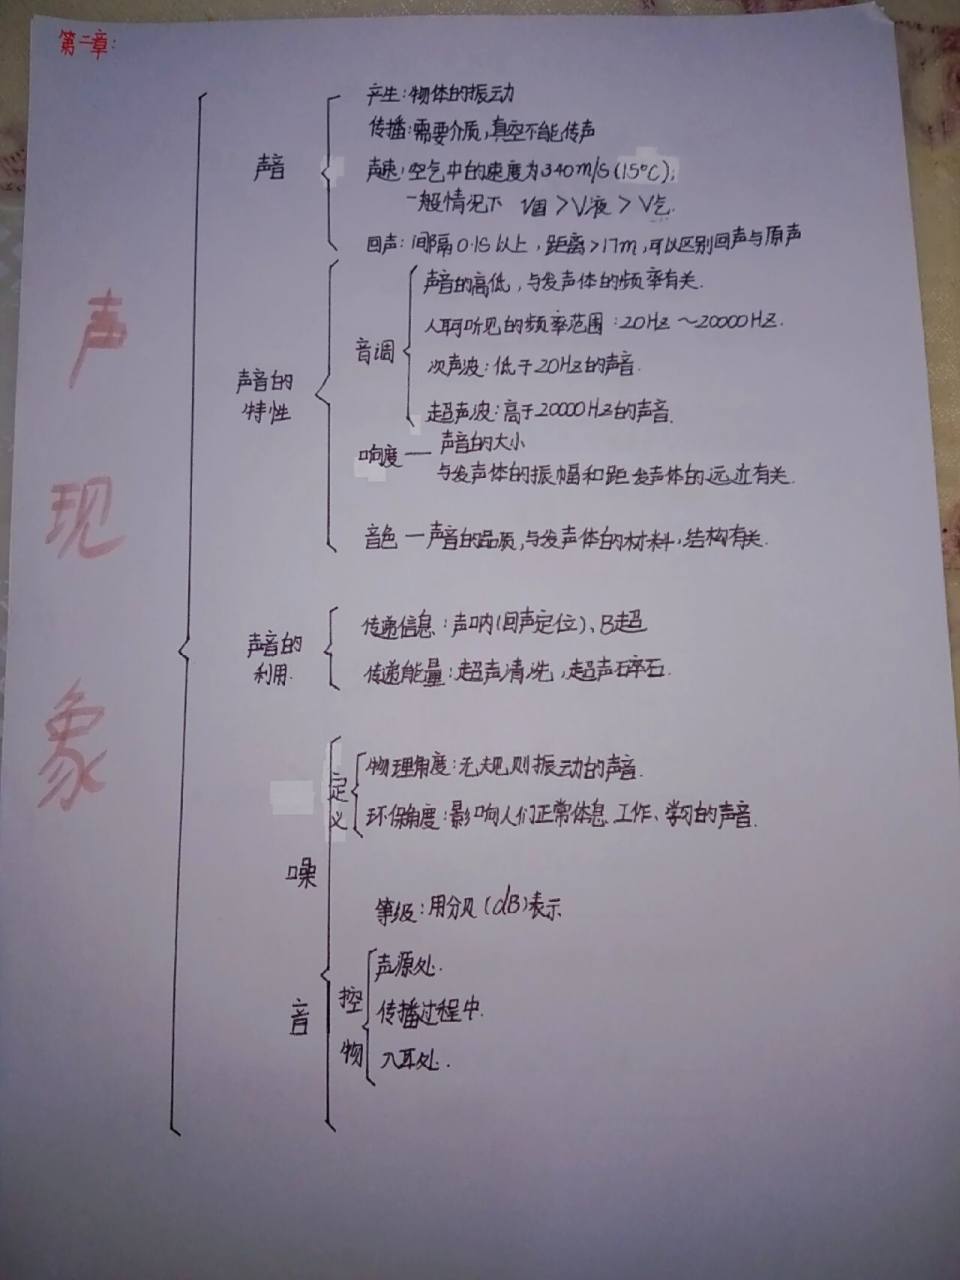 第二章:
声现象
声音
产生:物体的振动
传播:需要介质,真空不能传声
声速:空气中的速度为340m/s(15°C);
一般情况下 V固>V液>V气.
回声:间隔0.1S以上,距离>17m,可以区别回声与原声
声音的
特性
音调
声音的高低,与发声体的频率有关.
人耳听见的频率范围:20Hz~20000Hz.
次声波:低于20Hz的声音.
超声波:高于20000Hz的声音.
响度—声音的大小
与发声体的振幅和距发声体的远近有关.
音色—声音的品质,与发声体的材料,结构有关.
声音的
利用.
传递信息:声呐(回声定位)、B超
传递能量:超声清洗,超声碎石.
噪音
定义
物理角度:无规则振动的声音.
环保角度:影响人们正常体息、工作、学习的声音.
等级:用分贝(dB)表示
控物
声源处.
传播过程中.
入耳处.